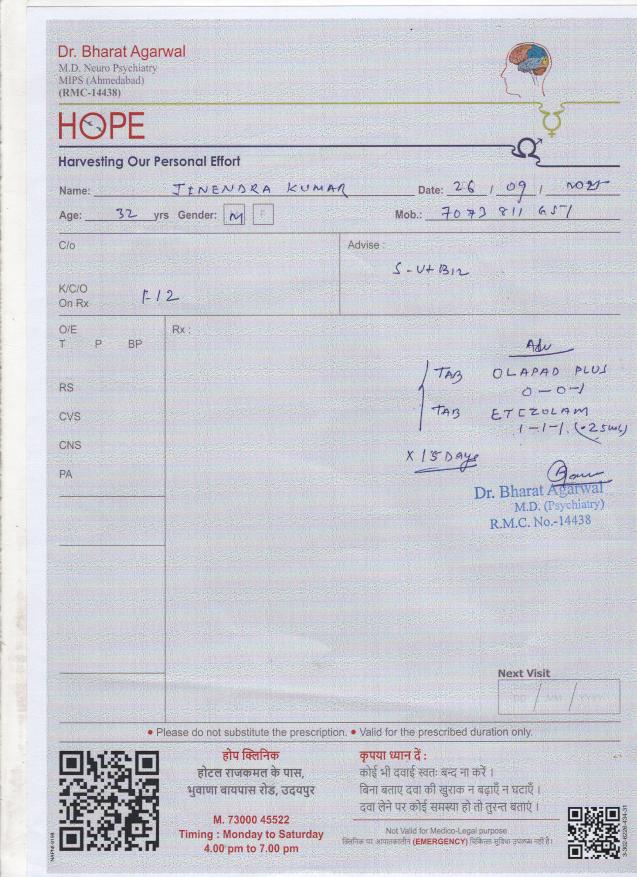 Dr. Bharat Agarwal
M.D. Neuro Psychiatry
MIPS (Ahmedabad)
(RMC-14438)
HOPE
Harvesting Our Personal Effort
Name: JINENDRA KUMAR Date: 26 / 09 /
Age: 32 yrs Gender: M F Mob.: 7073 811 651
C/o Advise :
S-Vit B12
K/C/O
On Rx F-12
O/E Rx :
T P BP
Adv
TAB OLAPAD PLUS
0-0-1
RS
TAB ETIZOLAM
CVS
1-1-1 (.25mg)
CNS
x 15 Days
PA
Dr. Bharat Agarwal
M.D. (Psychiatry)
R.M.C. No.-14438
Next Visit
DD / MM / YYYY
• Please do not substitute the prescription. • Valid for the prescribed duration only.
होप क्लिनिक
होटल राजकमत के पास,
भुवाणा बायपास रोड, उदयपुर
M. 73000 45522
Timing : Monday to Saturday
4.00 pm to 7.00 pm
कृपया ध्यान दें :
कोई भी दवाई स्वतः बन्द ना करें ।
बिना बताए दवा की खुराक न बढ़ाएँ न घटाएँ ।
दवा लेने पर कोई समस्या हो तो तुरन्त बताएं ।
Not Valid for Medico-Legal purpose
क्लिनिक पर आपातकालीन (EMERGENCY) चिकित्सा सुविधा उपलब्ध नहीं है।